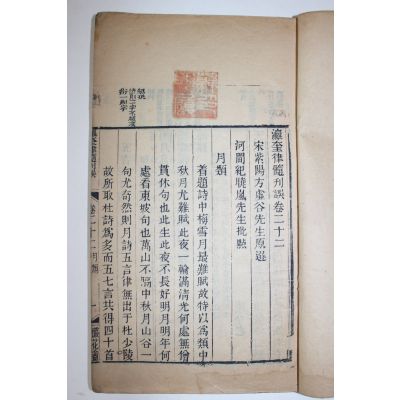 瀛奎律髓刊誤卷二十二
宋紫陽方虛谷先生原選
河間紀曉嵐先生批點
月類
着題詩中梅雪月最難賦故特以為類中
秋月尤難賦此夜一輪滿清光何處無僧
貫休句也此生此夜不長好明月明年何
處看東坡句也萬山不隔中秋月山谷一
句尤奇然則月詩五言律無出于杜少陵
故所取杜詩為多而五七言共得四十首
瀛奎律髓刊誤
卷二十二月類
一